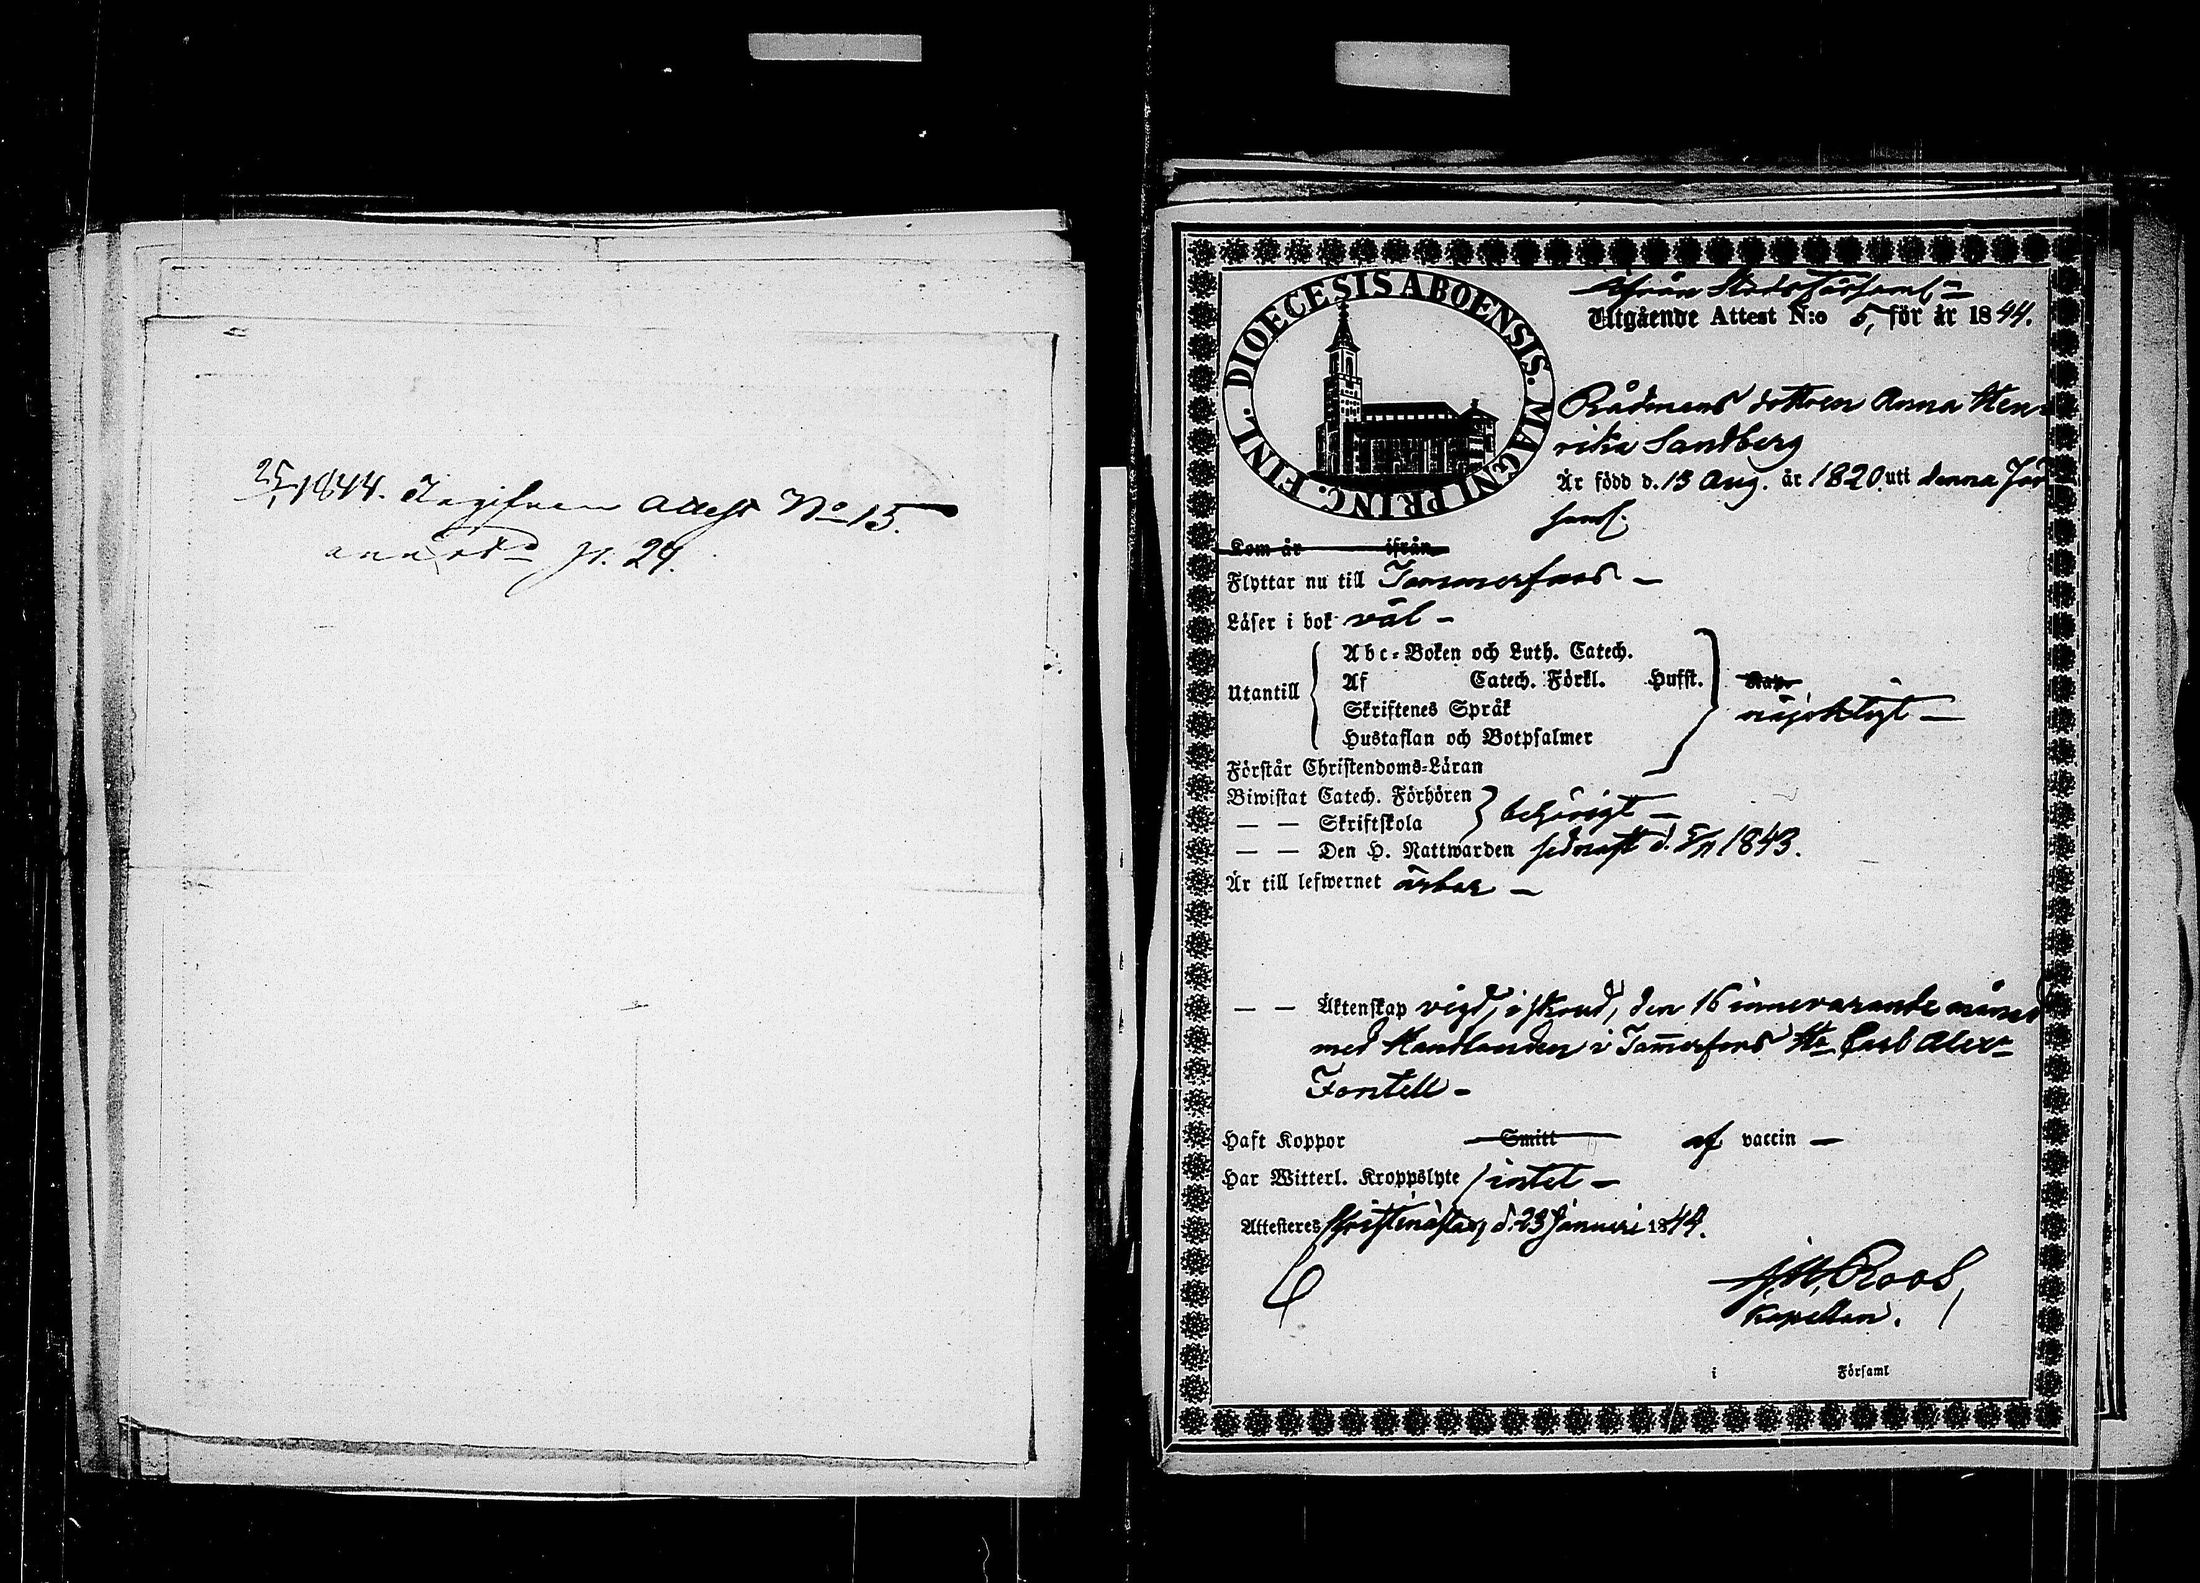 25/1 1844. Ingifven Attest No 15.
annotd p. 24.
DIOECESIS ABOENSIS. MAGNI PRINC. FINL.
ifrån Stadsförsaml:n
Utgående Attest N:o 5, för år 1844.
Rådmans dottren Anna Hen-
rika Sandberg
Är född d. 13 Aug. år 1820 uti denna För
saml.
Kom år ifrån
Flyttar nu till Tammerfors —
Läser i bok väl —
Utantill
Abc-Boken och Luth. Catech.
Af Catech. Förkl. Hufst. Kap.
Skriftenes Språk
nöjaktigt —
Hustaflan och Botpsalmer
Förstår Christendoms-Läran
Biwistat Catech. Förhören
— — Skriftskola behörigt —
— — Den H. Nattwarden sednast d. 5/11 1843.
Är till lefwernet ärbar —
— — Äktenskap vigd, i stånd, den 16 innevarande månad
med Handlanden i Tammerfors Hr Carl Alexr
Fontell —
Haft Koppor Smitt af vaccin —
Har Witterl. Kroppslyte intet —
Attesteras Christinæstad d. 23 Januari 1844.
Roos,
Kapellan.
i Församl